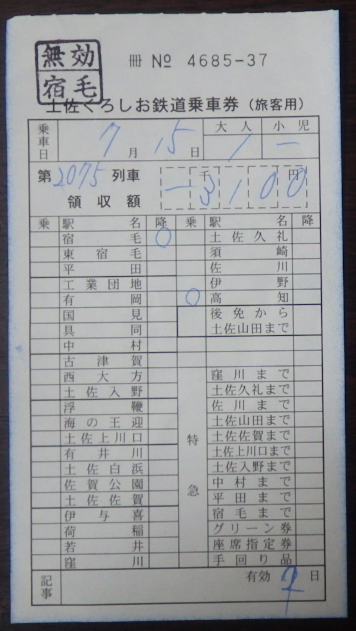 無効
宿毛
冊 No 4685-37
土佐くろしお鉄道乗車券（旅客用）
乗車日 7月 15日 大人 小児
1 一
第2075列車 千 円
領収額 一 3 1 0 0
乗 駅名 降 乗 駅名 降
宿毛 ○ 土佐久礼
東宿毛 須崎
平田 佐川
工業団地 伊野
有岡 ○ 高知
国見 後免から
具同 土佐山田まで
中村
古津賀
西大方 特急 窪川まで
土佐入野 土佐久礼まで
浮鞭 佐川まで
海の王迎 土佐山田まで
土佐上川口 土佐佐賀まで
有井川 土佐上川口まで
土佐白浜 土佐入野まで
佐賀公園 中村まで
土佐佐賀 平田まで
伊与喜 宿毛まで
荷稲 グリーン券
若井 座席指定券
窪川 手回り品
記事 有効 日